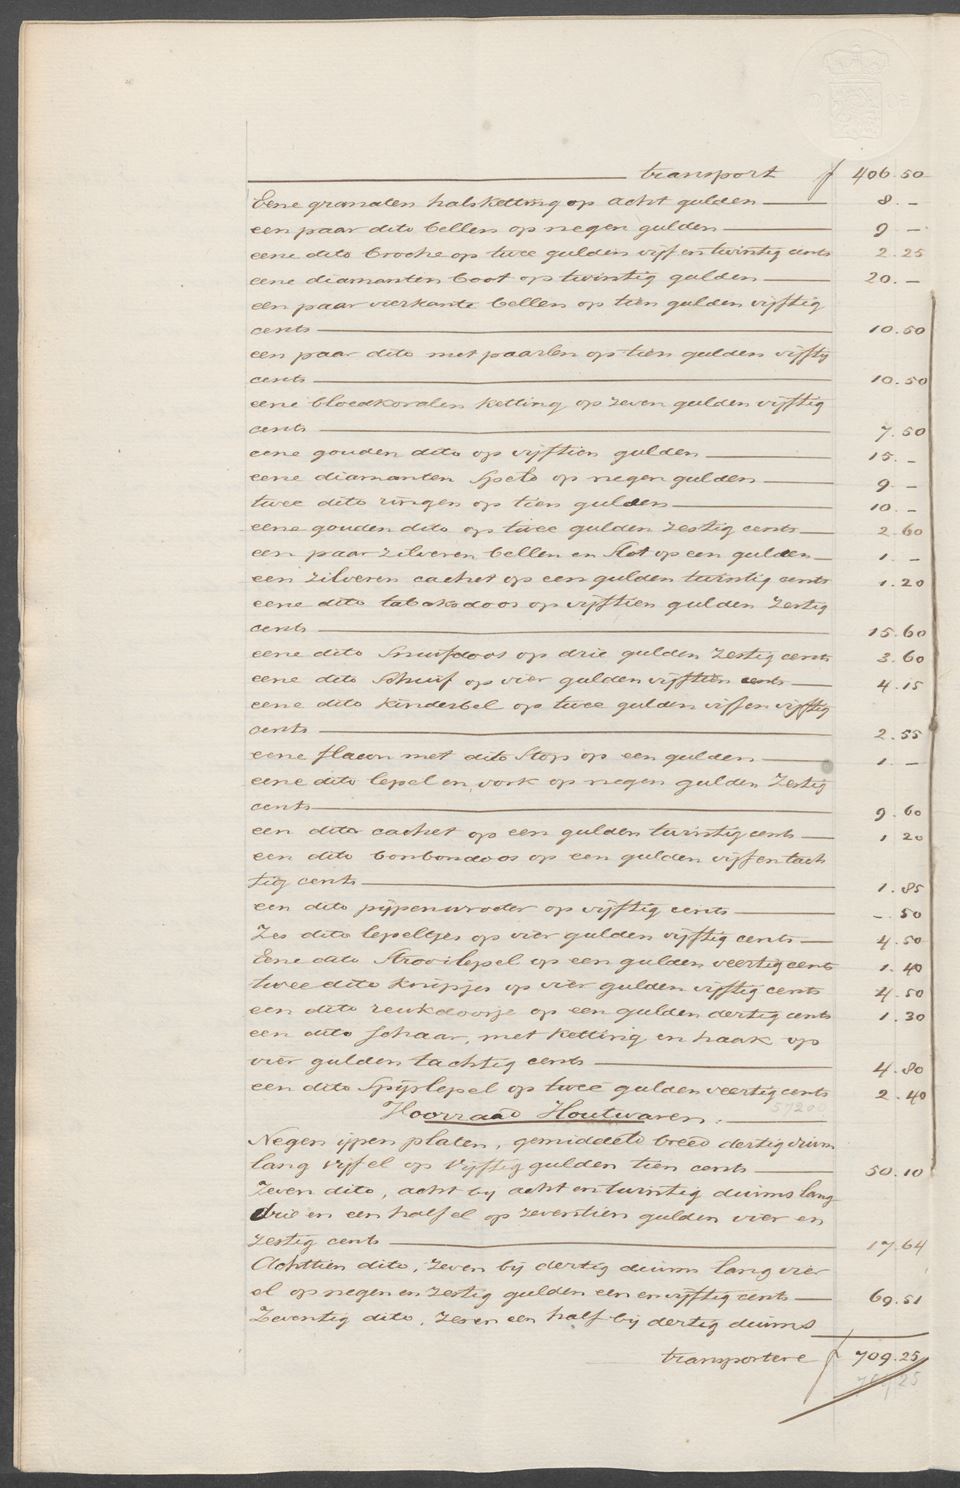 transport f 406.50
Eene granaten halsketting op acht gulden 8.-
een paar dito bellen op negen gulden 9.-
eene dito broche op twee gulden vijf en twintig cents 2.25
eene diamanten boot op twintig gulden 20.-
een paar vierkante bellen op tien gulden vijftig
cents 10.50
een paar dito met paarlen op tien gulden vijftig
cents 10.50
eene bloedkoralen ketting op zeven gulden vijftig
cents 7.50
eene gouden dito op vijftien gulden 15.-
eene diamanten Speld op negen gulden 9.-
twee dito ringen op tien gulden 10.-
eene gouden dito op twee gulden zestig cents 2.60
een paar zilveren bellen en Slot op een gulden 1.-
een zilveren cachet op een gulden twintig cents 1.20
eene dito tabaksdoos op vijftien gulden zestig
cents 15.60
eene dito Snuifdoos op drie gulden zestig cents 3.60
eene dito Schuif op vier gulden vijftien cents 4.15
eene dito kinderbel op twee gulden vijf en vijftig
cents 2.55
eene flacon met dito Stop op een gulden 1.-
eene dito lepel en vork op negen gulden zestig
cents 9.60
een dito cachet op een gulden twintig cents 1.20
een dito bonbondoos op een gulden vijf en tach
tig cents 1.85
een dito pijpenwroeter op vijftig cents -.50
Zes dito lepeltjes op vier gulden vijftig cents 4.50
Eene dito Strooilepel op een gulden veertig cents 1.40
twee dito knipjes op vier gulden vijftig cents 4.50
een dito reukdoosje op een gulden dertig cents 1.30
een dito schaar, met ketting en haak op
vier gulden tachtig cents 4.80
een dito Spijslepel op twee gulden veertig cents 2.40
Voorraad Houtwaren.
Negen ijpen platen, gemiddeld breed dertig duim
lang vijf el op Vijftig gulden tien cents 50.10
Zeven dito, acht bij acht en twintig duims lang
drie en een half el op zeventien gulden vier en
zestig cents 17.64
Achttien dito, zeven bij dertig duim lang vier
el op negen en zestig gulden een en vijftig cents 69.51
Zeventig dito, zes en een half bij dertig duims
transportere f 709.25